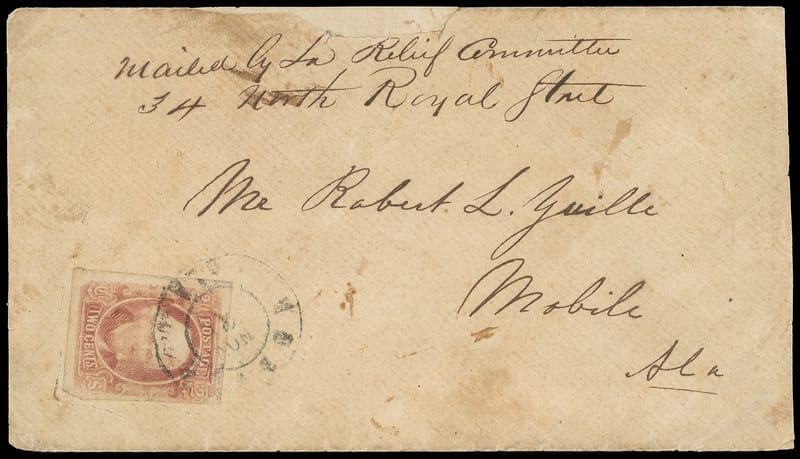 Mailed by La Relief Committee
34 North Royal Street
Mr Robert L. Yuille
Mobile
Ala
TWO CENTS
POSTAGE